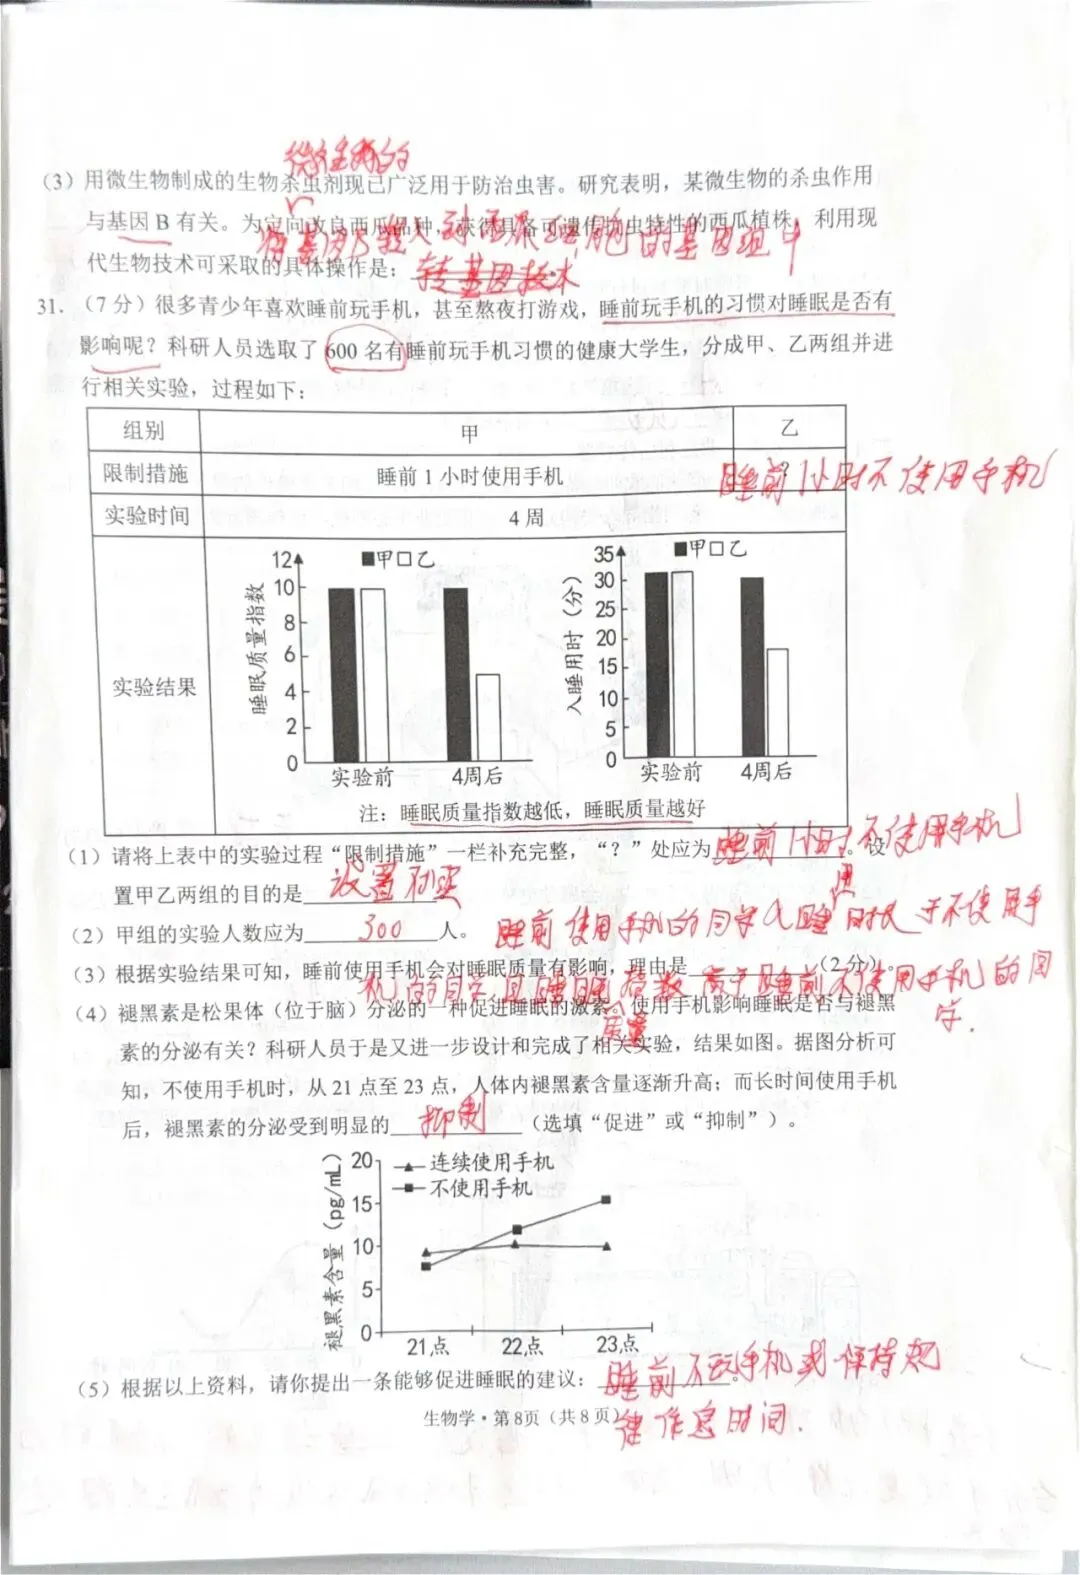 微生物的
(3)用微生物制成的生物杀虫剂现已广泛用于防治虫害。研究表明,某微生物的杀虫作用
与基因 B 有关。为定向改良西瓜品种,获得具备可遗传抗虫特性的西瓜植株,利用现
将基因B转入到西瓜细胞的基因组中
代生物技术可采取的具体操作是:
转基因技术
31.(7 分)很多青少年喜欢睡前玩手机,甚至熬夜打游戏,睡前玩手机的习惯对睡眠是否有
影响呢?科研人员选取了 600 名有睡前玩手机习惯的健康大学生,分成甲、乙两组并进
行相关实验,过程如下:
组别 甲 乙
限制措施 睡前 1 小时使用手机 ?
睡前1小时不使用手机
实验时间 4 周
实验结果
睡眠质量指数
12 10 8 6 4 2 0
■甲□乙
实验前 4周后
入睡用时(分)
35 30 25 20 15 10 5 0
■甲□乙
实验前 4周后
注:睡眠质量指数越低,睡眠质量越好
(1)请将上表中的实验过程“限制措施”一栏补充完整,“?”处应为 睡前1小时不使用手机 。设
置甲乙两组的目的是 设置对照
(2)甲组的实验人数应为 300 人。
睡前使用手机的同学入睡用时长于不使用手
(3)根据实验结果可知,睡前使用手机会对睡眠质量有影响,理由是 (2 分)。
机的同学且睡眠质量指数高于睡前不使用手机的同学.
(4)褪黑素是松果体(位于脑)分泌的一种促进睡眠的激素。使用手机影响睡眠是否与褪黑
素的分泌有关?科研人员于是又进一步设计和完成了相关实验,结果如图。据图分析可
知,不使用手机时,从 21 点至 23 点,人体内褪黑素含量逐渐升高;而长时间使用手机
后,褪黑素的分泌受到明显的 抑制 (选填“促进”或“抑制”)。
褪黑素含量(pg/mL)
20 15 10 5 0
连续使用手机
不使用手机
21点 22点 23点
(5)根据以上资料,请你提出一条能够促进睡眠的建议: 睡前不玩手机或保持规
律作息时间.
生物学·第 8页(共 8 页)